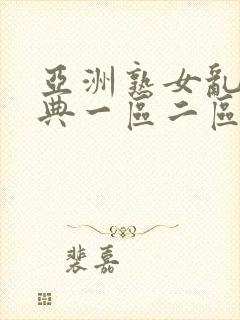 亞洲熟女亂
典一區二區
裴嘉